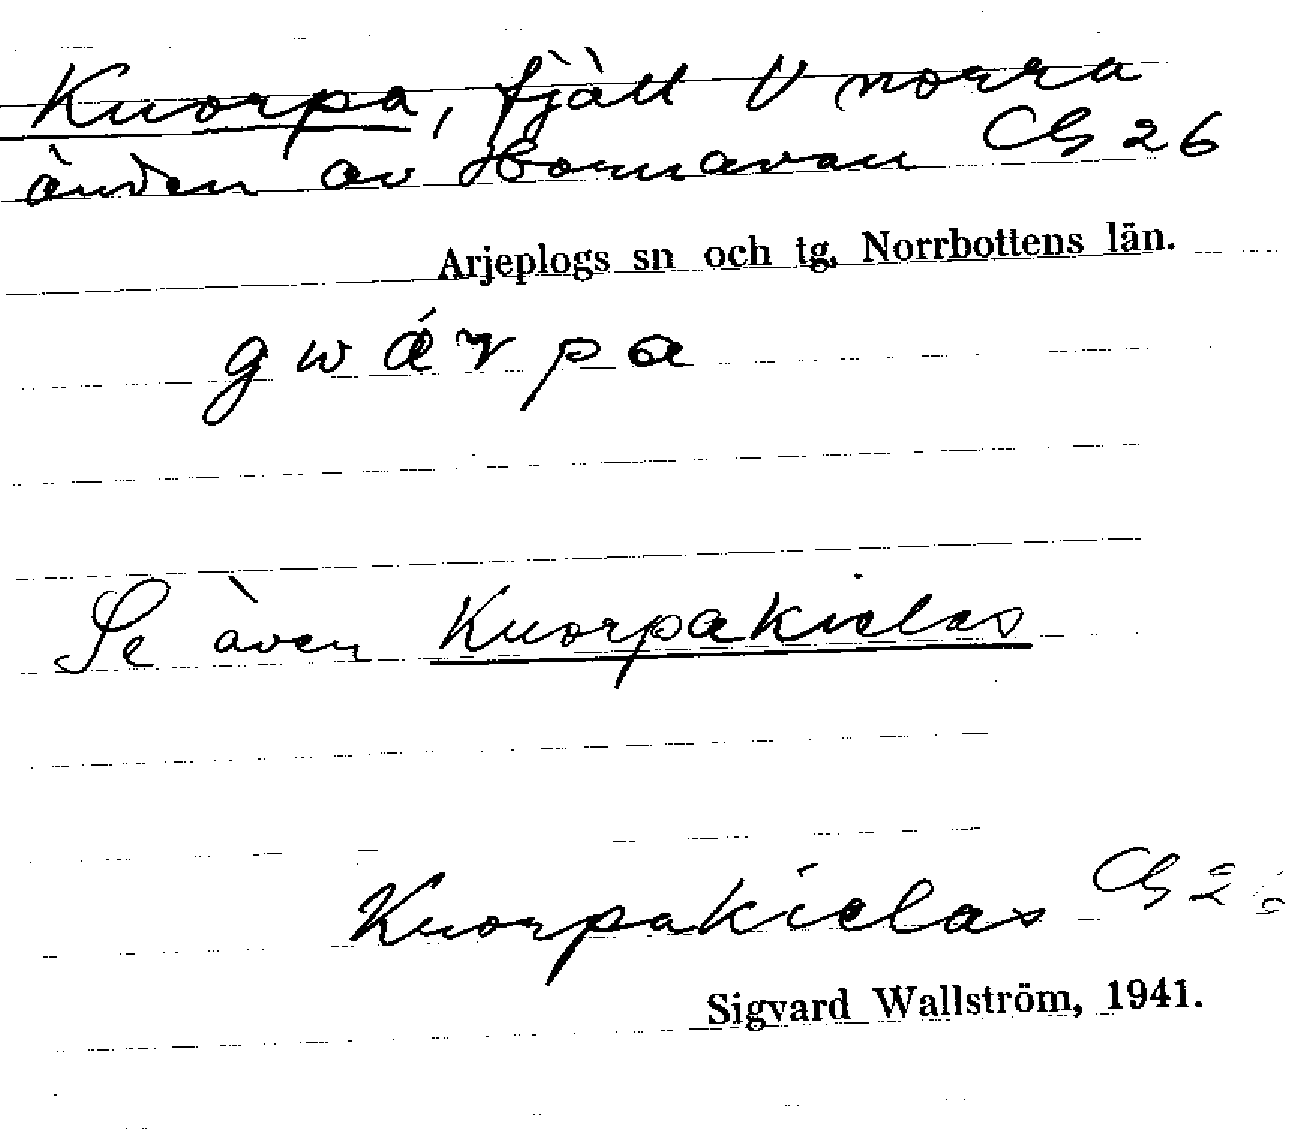 Kuorpa, fjäll V norra
änden av Hornavan Cb 26
Arjeplogs sn och tg, Norrbottens län.
gwárpa
Se även Kuorpakielas
Kuorpakielas Cb 26
Sigvard Wallström, 1941.